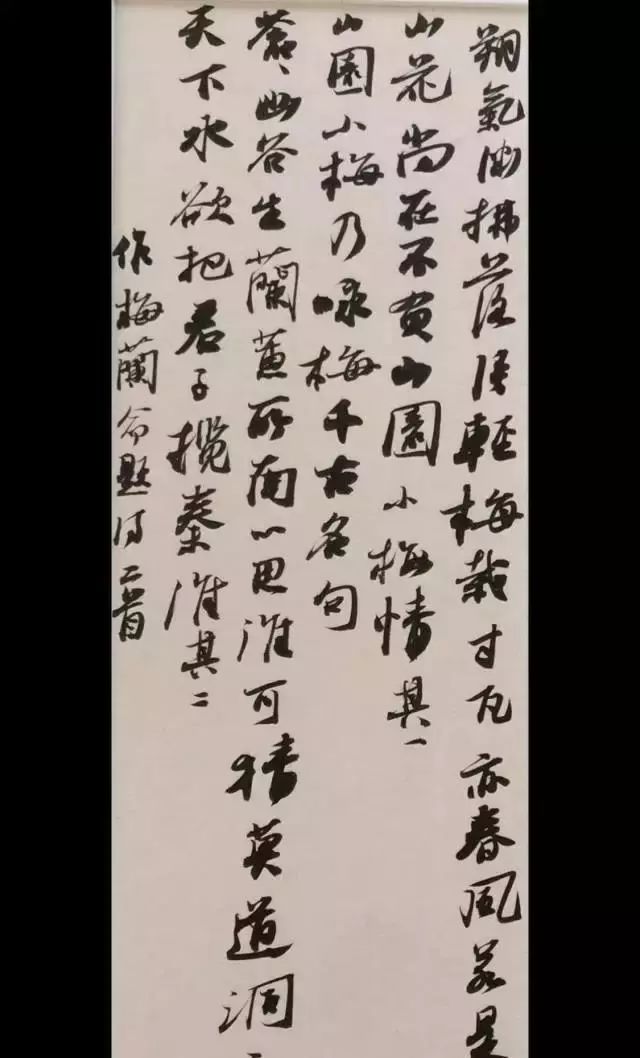 朔氣幽拂落清輕梅栽寸瓦亦春風若是
山花尚在不負山園小梅情其一
山園小梅乃咏梅千古名句
蒼山谷生蘭蕙所南心思谁可猜莫道洞
天下水欲把君子攬秦淮其二
作梅蘭命題詩二首